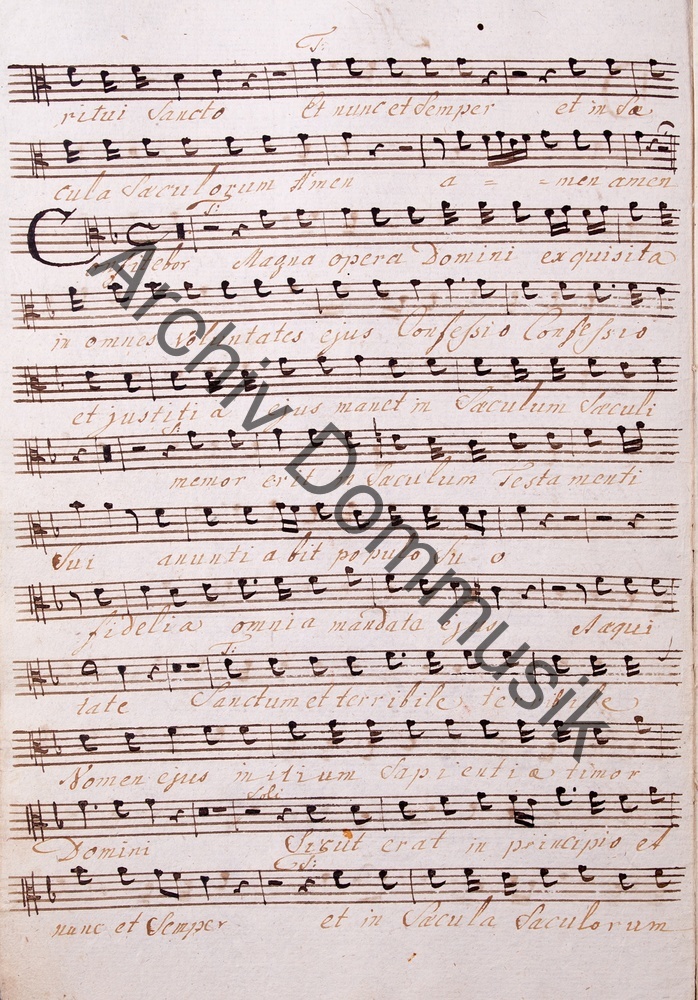 T:
ritui Sancto Et nunc et Semper et in Sæ
cula Sæculorum Amen a = - men amen
T:
Confitebor Magna opera Domini exquisita
in omnes voluntates ejus Confessio Confessio
et justitia ejus manet in Sæculum Sæculi
T:
memor erit in Sæculum Testamenti
Sui anuntiabit populo Suo
fidelia omnia mandata ejus et æqui
T:
tate Sanctum et terribile
Nomen ejus initium Sapientiæ timor
Soli
Domini Sicut erat in principio et
T:
nunc et Semper et in Sæcula Sæculorum
Archiv Dommusik